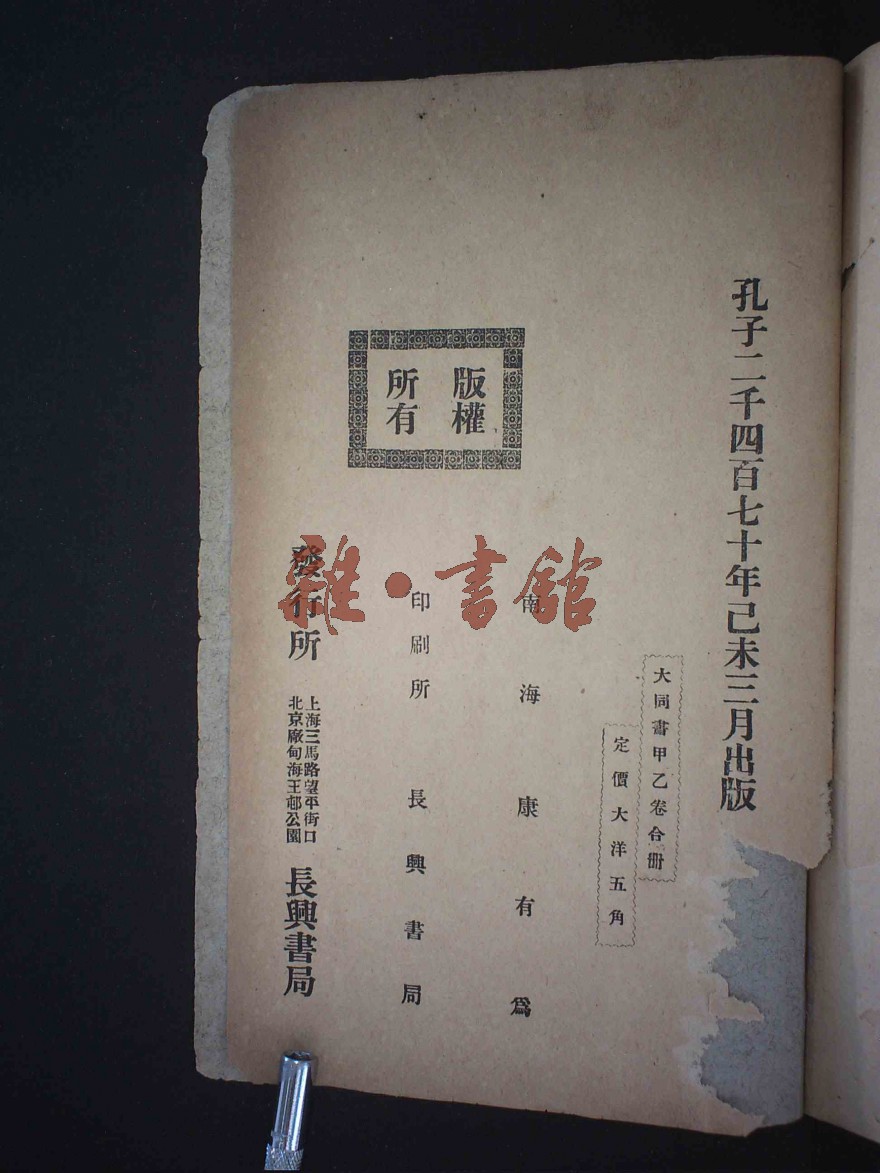 孔子二千四百七十年己未三月出版
大同書甲乙卷合冊
定價大洋五角
版權
所有
南海康有爲
印刷所 長興書局
發行所
上海三馬路望平街口
北京廠甸海王邨公園
長興書局
雜·書館